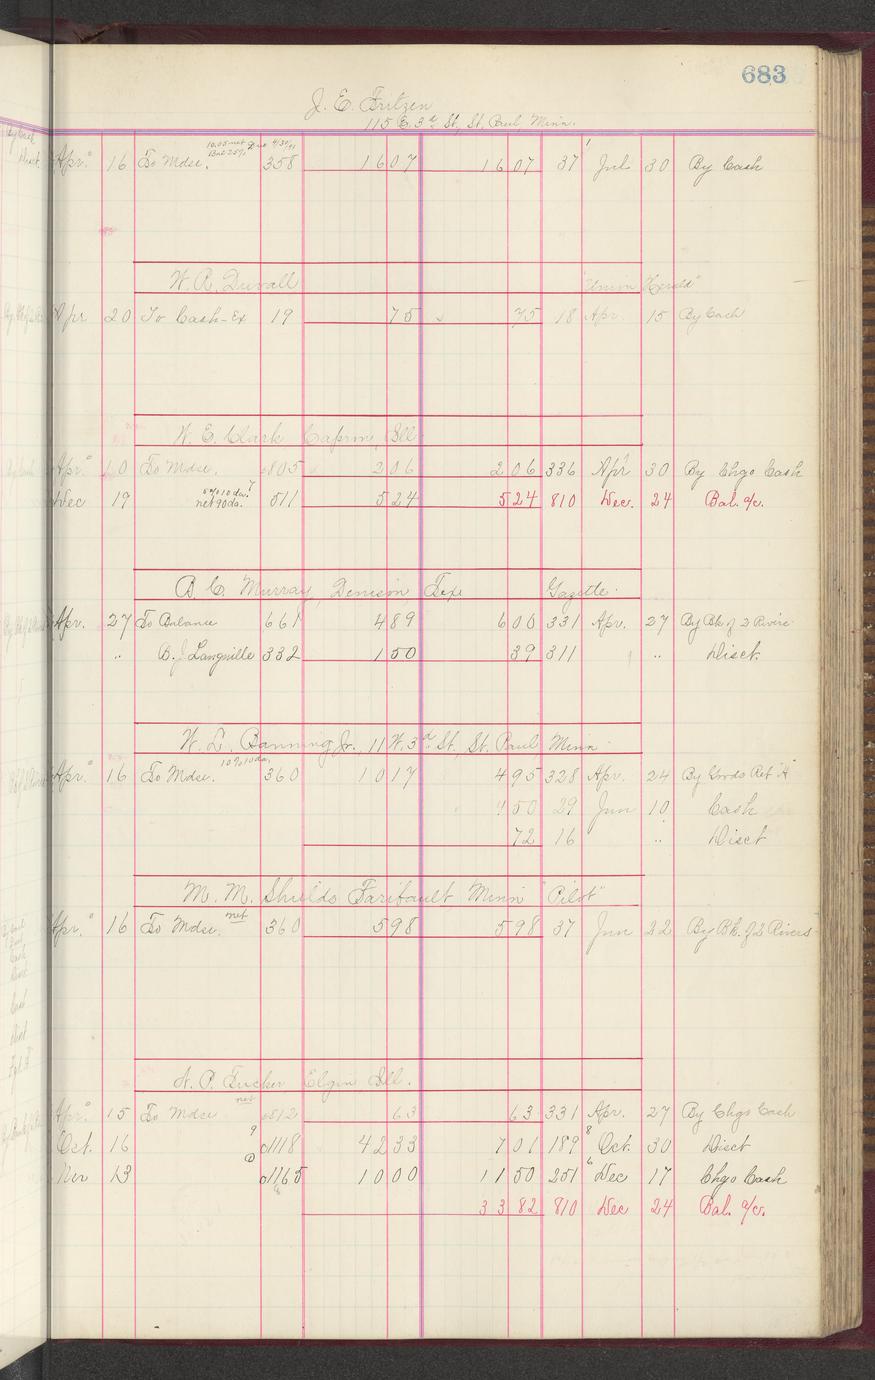 683
J. E. Fritzen
115 E. 3d St, St. Paul, Minn.
Apr. 16 To Mdse. 358 1607 1607 37 Jul 30 By Cash
W. R. Duvall "Union Herald"
Apr 20 To Cash-Ex 19 75 75 18 Apr. 15 By Cash
W. E. Clark Capron, Ill.
Apr. 10 To Mdse. 805 206 206 336 Apr 30 By Chgo Cash
5% 10 da.
Dec 19 net 90 da. 511 524 524 810 Dec. 24 Bal. a/c.
B. C. Murray, Denison Tex Gazette
Apr. 27 To Balance 661 489 600 331 Apr. 27 By Bk. of 2 Rivers
" B. J. Langville 332 150 39 311 " Disct.
W. L. Banning Jr., 11 W. 3d St., St. Paul Minn
10% 10 da.
Apr. 16 To Mdse. 360 1017 495 328 Apr. 24 By Goods Ret "A"
450 29 Jun 10 Cash
72 16 " Disct
M. M. Shields Faribault Minn "Pilot"
Apr. 16 To Mdse. net 360 598 598 37 Jun 22 By Bk. of 2 Rivers
A. P. Tucker Elgin Ill.
net
Apr. 15 To Mdse 812 63 63 331 Apr. 27 By Chgo Cash
Oct. 16 1118 4233 701 189 Oct. 30 Disct
Nov 13 1165 1000 1150 251 Dec 17 Chgo Cash
3382 810 Dec 24 Bal. a/c.